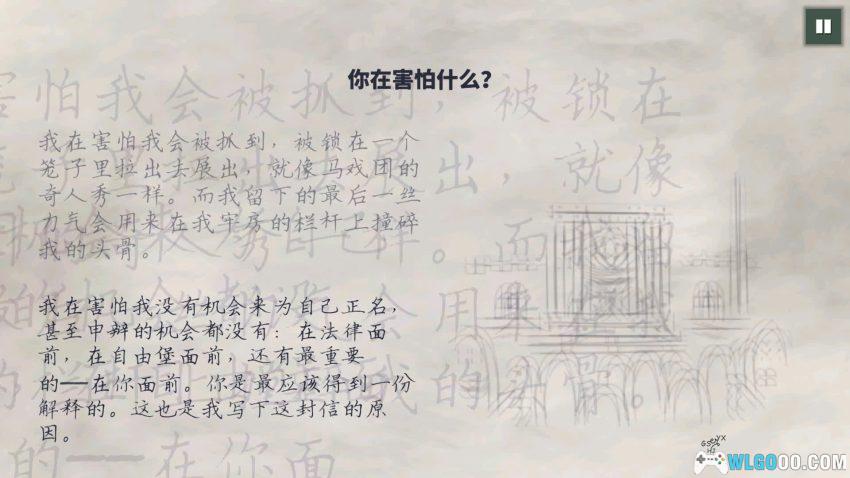 你在害怕什么？
我在害怕我会被抓到，被锁在一个
笼子里拉出去展出，就像马戏团的
奇人秀一样。而我留下的最后一丝
力气会用来在我牢房的栏杆上撞碎
我的头骨。
我在害怕我没有机会来为自己正名，
甚至申辩的机会都没有：在法律面
前，在自由堡面前，还有最重要
的——在你面前。你是最应该得到一份
解释的。这也是我写下这封信的原
因。
害怕我会被抓到，被锁在
出，就像
。而我
会用来
的头骨。
的——在你面
WLGOOO.COM